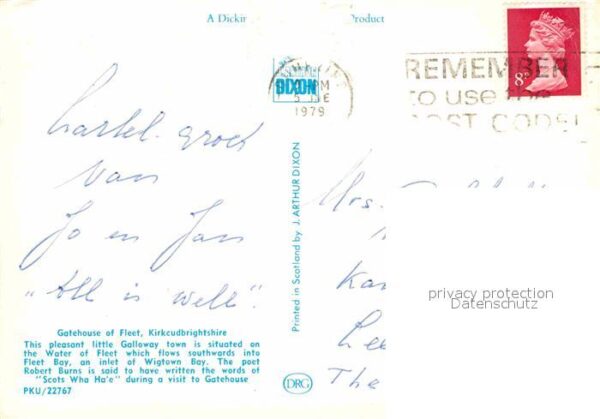 A Dickin Product
DIXON
PM
1979
REMEMBER
to use the
POST CODE!
8P
hartel. groet
van
Jo en Jan
"All is well".
Mrs.
Kan
Lee
The
Printed in Scotland by J. ARTHUR DIXON
privacy protection
Datenschutz
Gatehouse of Fleet, Kirkcudbrightshire
This pleasant little Galloway town is situated on
the Water of Fleet which flows southwards into
Fleet Bay, an inlet of Wigtown Bay. The poet
Robert Burns is said to have written the words of
"Scots Wha Ha'e" during a visit to Gatehouse
PKU/22767
DRG